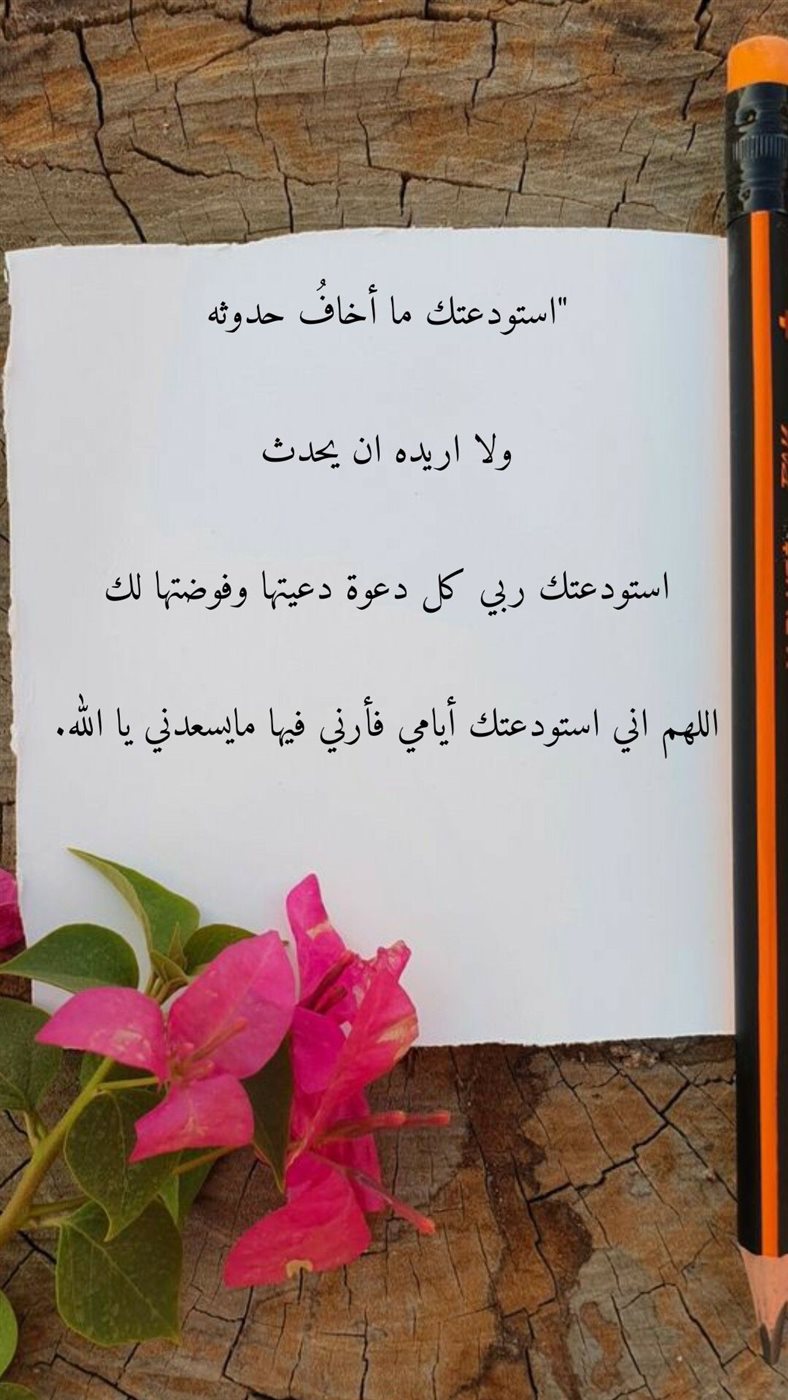 "استودعتك ما أخافُ حدوثه
ولا اريده ان يحدث
استودعتك ربي كل دعوة دعيتها وفوضتها لك
اللهم اني استودعتك أيامي فأرني فيها مايسعدني يا الله.